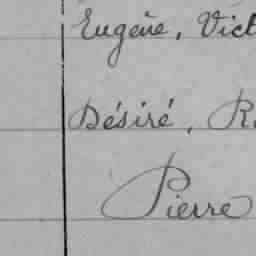 Eugène, Vict
Désiré, R
Pierre